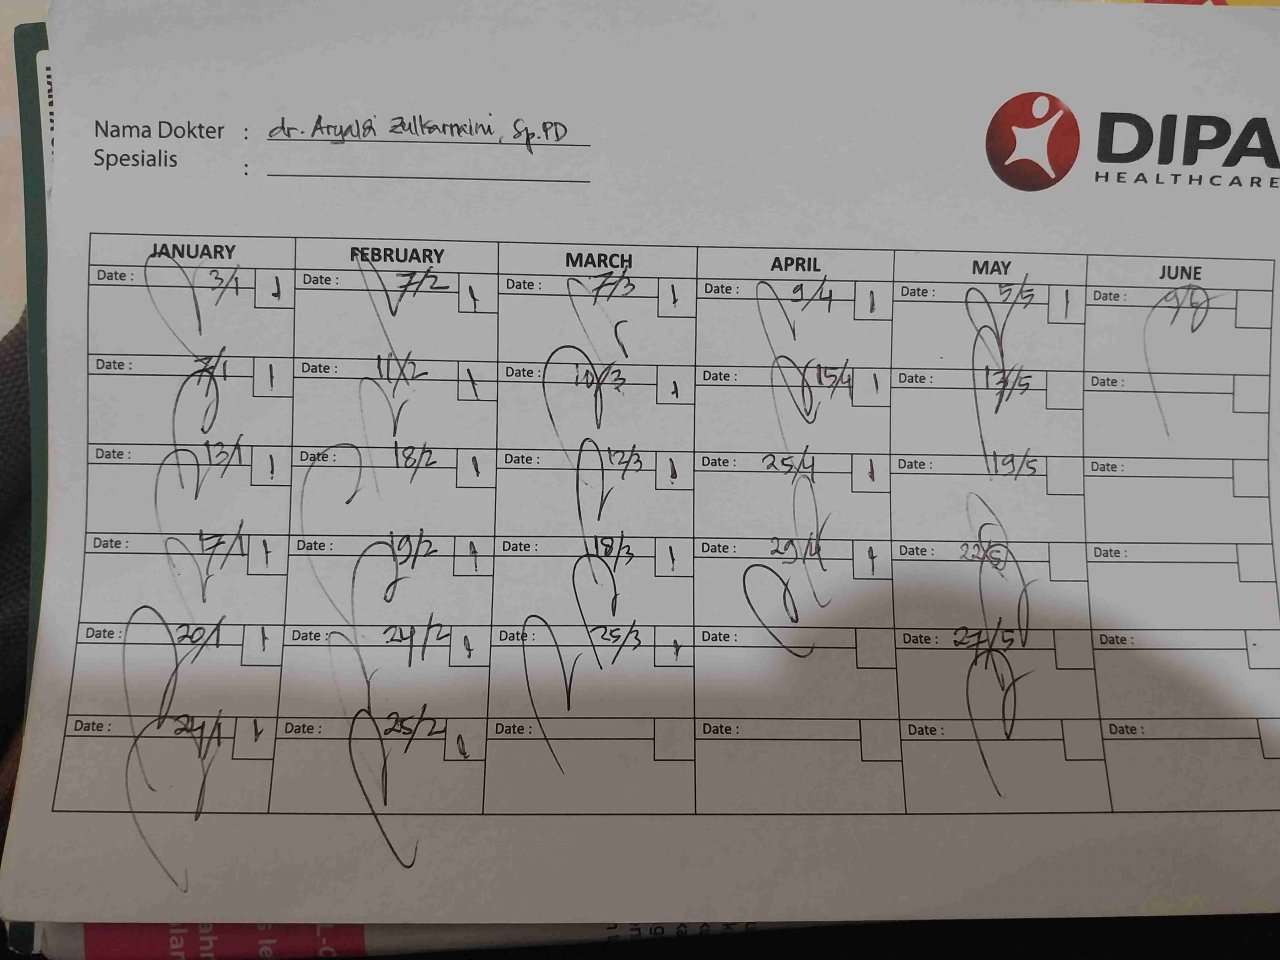 Nama Dokter : dr. Zulkarnaini, Sp.PD
Spesialis :
DIPA
HEALTHCARE
JANUARY FEBRUARY MARCH APRIL MAY JUNE
Date : 3/1 1 Date : 7/2 1 Date : 7/3 1 Date : 9/4 1 Date : 5/5 1 Date :
Date : 7/1 1 Date : 11/2 1 Date : 10/3 1 Date : 15/4 1 Date : 13/5 Date :
Date : 13/1 1 Date : 18/2 1 Date : 12/3 1 Date : 25/4 1 Date : 19/5 Date :
Date : 17/1 1 Date : 19/2 1 Date : 18/3 1 Date : 29/4 1 Date : 22/5 Date :
Date : 20/1 1 Date : 24/2 1 Date : 25/3 1 Date : Date : 27/5 Date :
Date : 24/1 1 Date : 25/2 1 Date : Date : Date : Date :